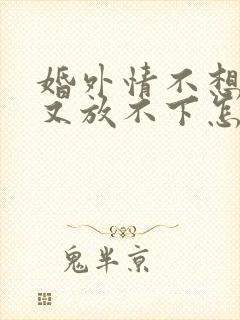 婚外情不想
又放不下怎
鬼半京